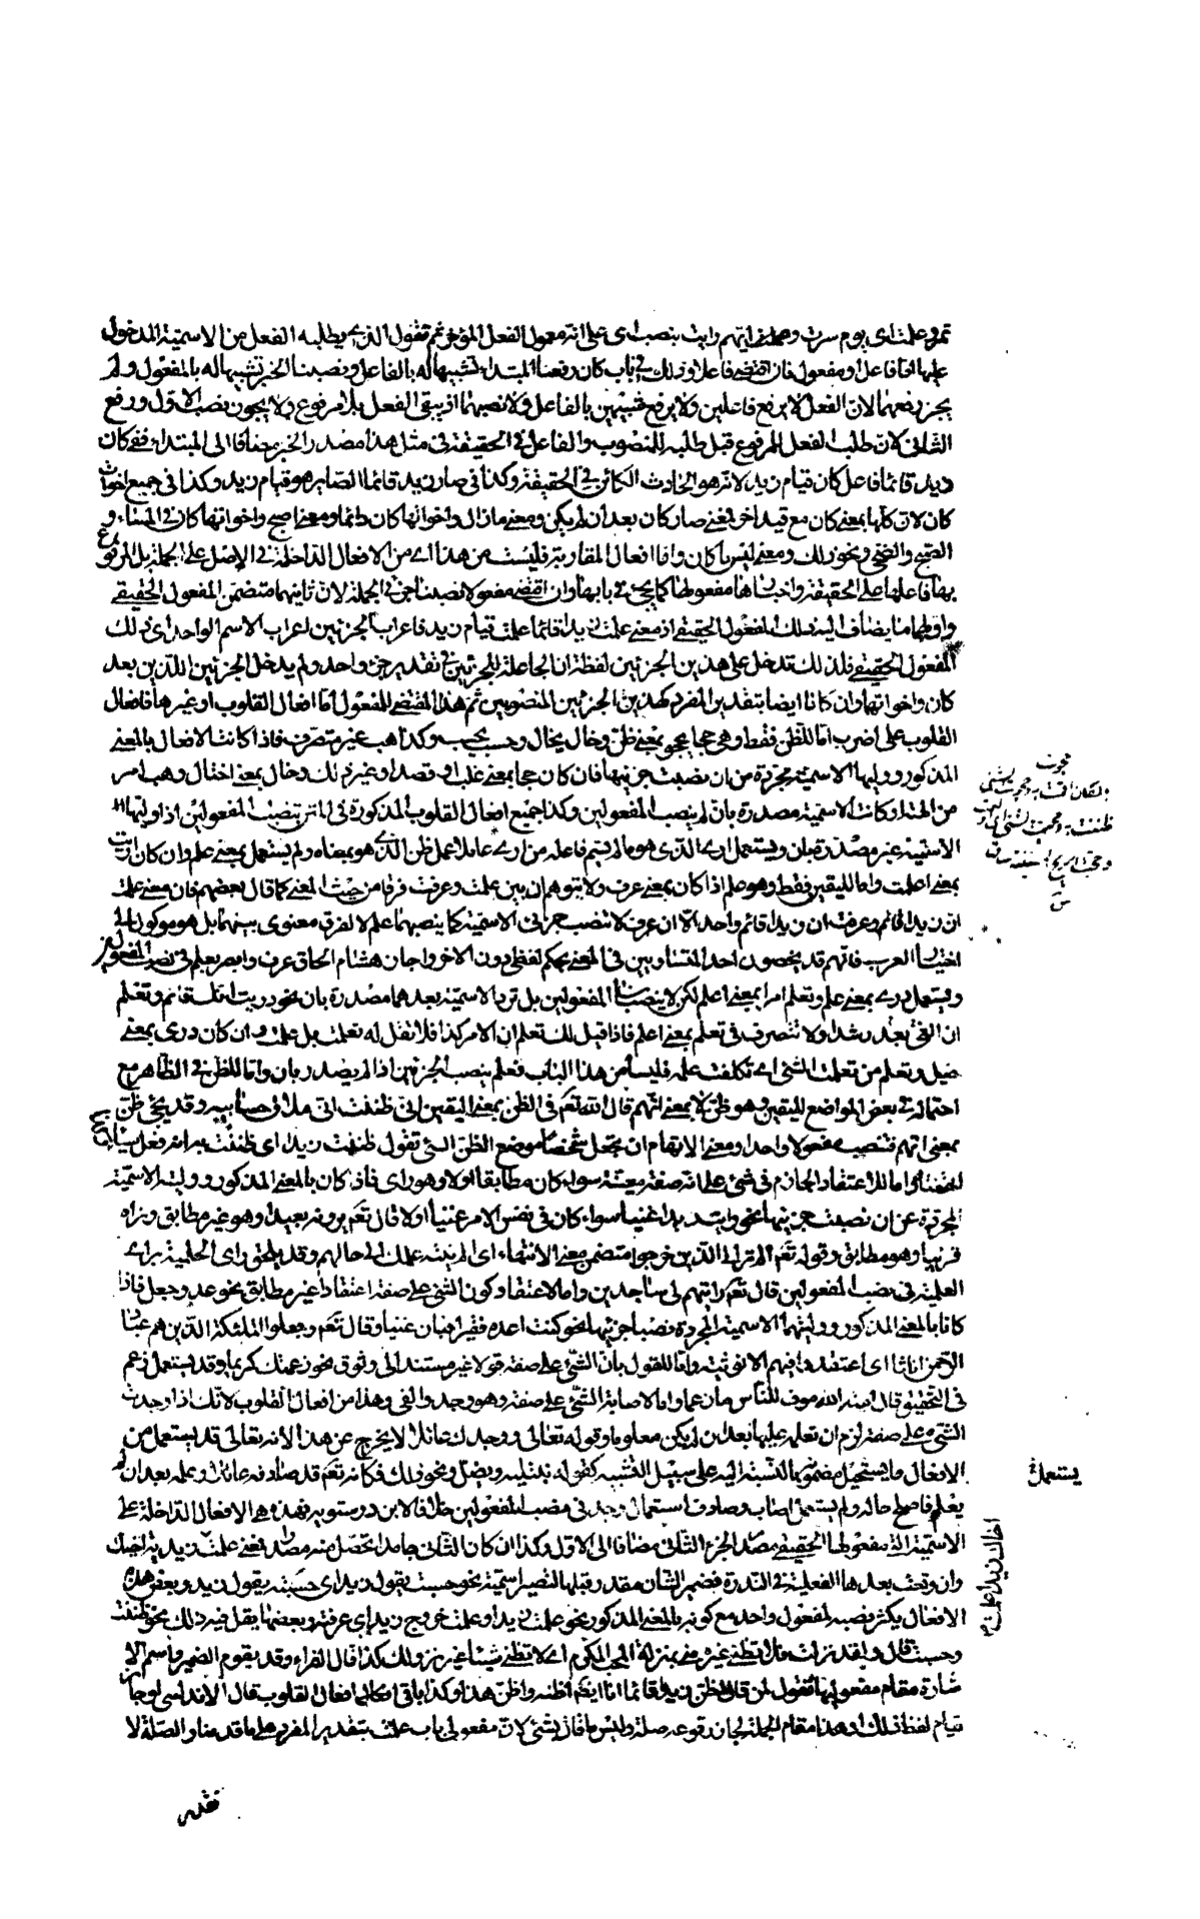 تمرو علمت اى يوم سرت و علمت ايهم رايت بنصب اى على انه معمول الفعل المؤخر ثم تقول الذى يطلبه الفعل من الاسمية المدخول
عليها اما فاعل او مفعول فان اقتضى فاعلا وذلك فى باب كان رفعنا المبتدا تشبيها له بالفاعل ونصبنا الخبر تشبيها له بالمفعول ولم
يجز رفعهما لان الفعل لا يرفع فاعلين ولا يرفع شبيهين بالفاعل ولا نصبهما اذ يبقى الفعل بلا مرفوع ولا يجوز نصب الاول ورفع
الثانى لان طلب الفعل للمرفوع قبل طلبه للمنصوب والفاعل فى الحقيقة فى مثل هذا مصدر الخبر مضافا الى المبتدا ففى كان
زيد قائما فاعل كان قيام زيد لانه هو الحادث الكائن فى الحقيقة وكذا فى صار زيد قائما الصاير هو قيام زيد وكذا فى جميع اخوات
كان لان كلها بمعنى كان مع قيد اخر فمعنى صار كان بعد ان لم يكن ومعنى مازال واخواتها كان دائما ومعنى اصبح واخواتها كان فى المساء و
الصبح والضحى ونحو ذلك ومعنى ليس ما كان واما افعال المقاربة فليست من هذا اى من الافعال الداخلة فى الاصل على الجملة بل المرفوع
بها فاعلها على الحقيقة واخبارها مفعولها كما يجئ فى بابها وان اقتضى مفعولا نصبنا جزئى الجملة لان ثانيهما متضمن المفعول الحقيقى
واولهما ما يضاف اليه ذلك المفعول الحقيقى اذ معنى علمت زيدا قائما علمت قيام زيد فاعراب الجزئين اعراب الاسم الواحد اى ذلك
المفعول الحقيقى فلذلك تدخل على هذين الجزئين لفظة ان الجاعلة للجزئين فى تقدير جزء واحد ولم يدخل الجزئين اللذين بعد
كان واخواتها وان كانا ايضا بتقدير المفرد كهذين الجزئين المنصوبين ثم هذا المقتضى للمفعول اما افعال القلوب او غيرها فافعال
القلوب على اضرب اما للظن فقط وهى حجا يحجو بمعنى ظن وخال يخال وحسب يحسب وكذا هب غير متصرف فاذا كانت الافعال بالمعنى
المذكور ووليها الاسمية مجردة من ان نصبت جزئيها فان كان حجا بمعنى غلب او قصد او غير ذلك وخال بمعنى اختال وهب امر
من الهبة او كانت الاسمية مصدرة بان لم ينصب المفعولين وكذا جميع افعال القلوب المذكورة فى المتن تنصب المفعولين اذا وليها
الاسمية غير مصدرة بان ويستعمل ارى الذى هو ما لم يسم فاعله من ارى عاملا عمل ظن الذى هو بمعناه ولم يستعمل بمعنى علم وان كان اريت
بمعنى اعلمت واما لليقين فقط وهو علم اذا كان بمعنى عرف ولا يتوهم ان بين علمت وعرفت فرقا من حيث المعنى كما قال بعضهم فان معنى علمت
ان زيدا قائم وعرفت ان زيدا قائم واحد الا ان عرف لا تنصب جزئى الاسمية كما ينصبهما علم لا لفرق معنوى بينهما بل هو موكول الى
اختيار العرب فانهم قد يخصون احد المتساويين فى المعنى بحكم لفظى دون الاخر واجاز هشام الحاق عرف وابصر بعلم فى نصب المفعولين
ويستعمل درى بمعنى علم وتعلم امرا بمعنى اعلم لكن لا ينصبان المفعولين بل ترد الاسمية بعدهما مصدرة بان نحو دريت انك قائم وتعلم
ان الغى بعده رشدا ولا تتصرف فى تعلم بمعنى اعلم فاذا قيل لك تعلم ان الامر كذا فلا تقل له تعلمت بل علمت وان كان درى بمعنى
ختل وتعلم من تعلمت الشئ اى تكلفت علمه فليسا من هذا الباب فعلم ينصب الجزئين اذا لم يصدر بان واما للظن فى الظاهر مع
احتماله فى بعض المواضع لليقين وهو ظن لا بمعنى اتهم قال الله تعم فى الظن بمعنى اليقين انى ظننت انى ملاق حسابيه وقد يجئ ظن
بمعنى اتهم فتنصب مفعولا واحدا ومعنى الاتهام ان تجعل شخصا موضع الظن السئ تقول ظننت زيدا اى ظننت به انه فعل سيئا
واما للاعتقاد الجازم فى شئ على انه صفة معينة سواء كان مطابقا اولا وهو راى فاذا كان بالمعنى المذكور ووليته الاسمية
المجردة عن ان نصبت جزئيها نحو رايت زيدا غنيا سواء كان فى نفس الامر غنيا اولا قال تعم يرونه بعيدا وهو غير مطابق ونراه
قريبا وهو مطابق وقوله تعم الم تر الى الذين خرجوا متضمن معنى الانتهاء اى الم ينته علمك الى حالهم وقد يلحق راى الحلمية براى
العلمية فى نصب المفعولين قال تعم رايتهم لى ساجدين واما لاعتقاد كون الشئ على صفة اعتقادا غير مطابق نحو عد وجعل فاذا
كانا بالمعنى المذكور ووليتهما الاسمية المجردة نصبا جزئيها نحو كنت اعده فقيرا فبان غنيا وقال تعم وجعلوا الملئكة الذين هم عباد
الرحمن اناثا اى اعتقدوا فيهم الانوثية واما للقول بان الشئ على صفة قولا غير مستند الى وثوق نحو زعمتك كريما وقد يستعمل زعم
فى التحقيق قال امية الله موف للناس ما زعما واما لاصابة الشئ على صفة وهو وجد والفى وهذا من افعال القلوب لانك اذا وجدت
الشئ على صفة لزم ان تعلمه عليها بعد ان لم يكن معلوما وقوله تعالى ووجدك عائلا لا يخرج عن هذا لانه تعالى قد يستعمل من
الافعال ما يستحيل مضمونها بالنسبة اليه على سبيل التشبيه كقوله نبتليه ويضل ونحو ذلك فكانه تعم قد صادفه عائلا وعلمه بعد ان لم
يعلم فاصلح حاله ولم يستعمل اصاب وصادف استعمال وجد فى نصب المفعولين خلافا لابن درستويه فهذه هى الافعال الداخلة على
الاسمية التى مفعولها الحقيقى مصدر الجزء الثانى مضافا الى الاول وكذا ان كان الثانى جامدا تحصل منه مصدرا فمعنى علمت زيدا اخاك
وان وقعت بعدها الفعلية فى الندرة فضمير الشان مقدر قبلها لتصير اسمية نحو حسبت يقول زيد اى حسبته يقول زيد وبعض هذه
الافعال يكثر نصبه لمفعول واحد مع كونه بالمعنى المذكور نحو علمت زيدا وعلمت خروج زيد اى عرفته وبعضها يقل فيه ذلك نحو ظننت
وحسبت قال ولقد نزلت فلا تظنى غيره منى بمنزلة المحب المكرم اى لا تظنى شيئا غير نزولك كذا قال الفراء وقد يقوم الضمير واسم الا
شارة مقام مفعوليها تقول لمن قال اظن زيدا قائما انا ايضا اظنه واظن هذا وكذا باقى افعال القلوب قال الاندلسى لو جاز
قيام لفظ ذلك او هذا مقام الجملة لجاز وقوعه صلة وليس ما قاله بشئ لان مفعولى باب علمت بتقدير المفرد على ما قدمنا والصلة لا
يستعمل